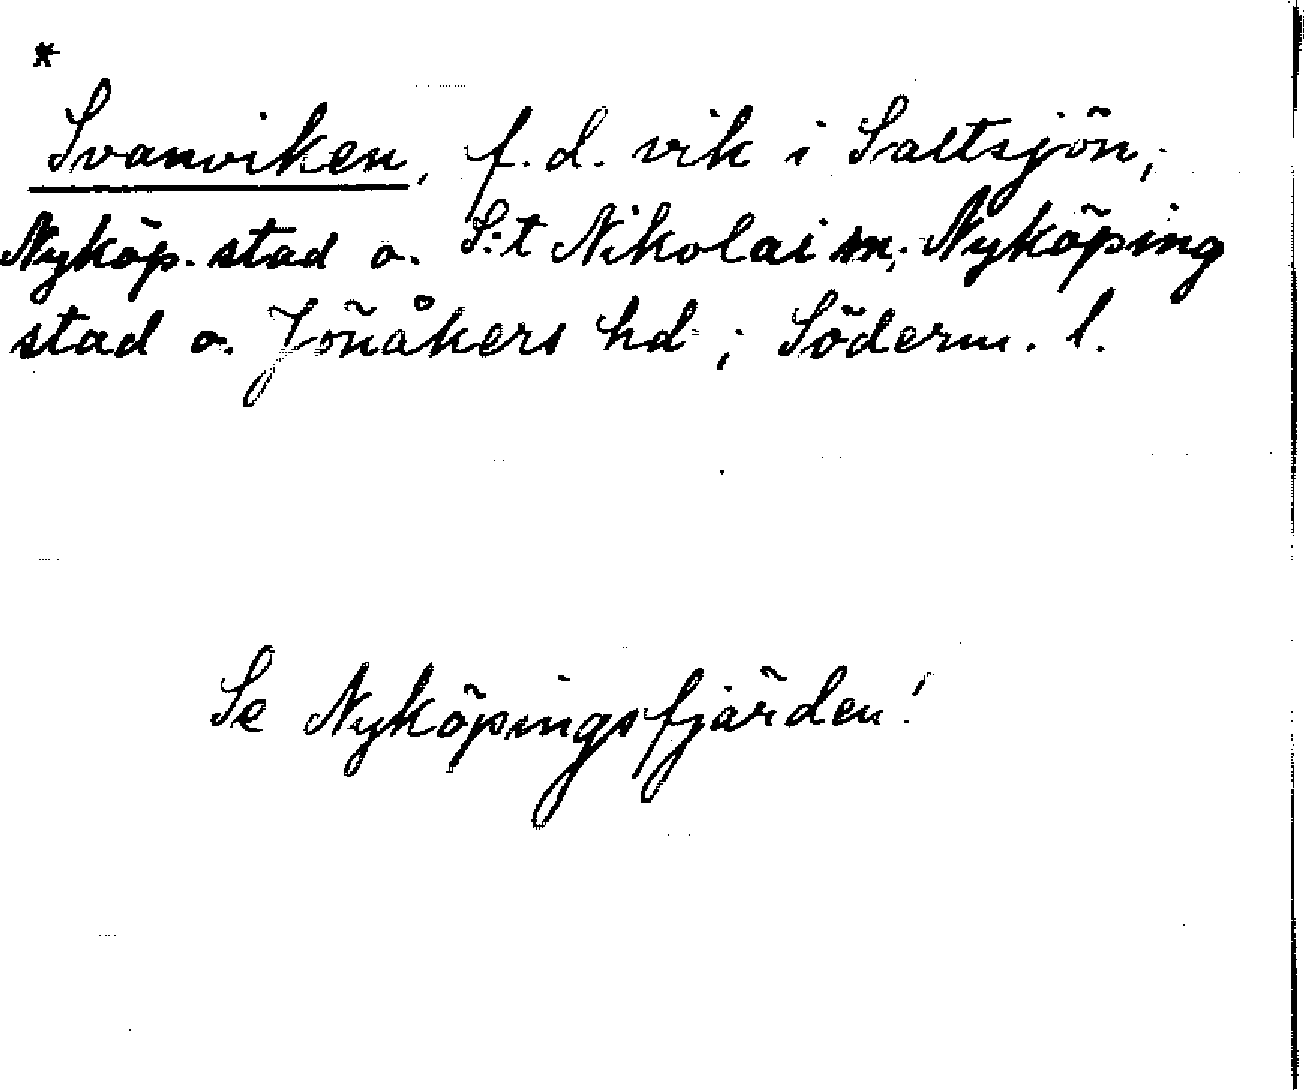 *
Svanviken, f.d. vik i Saltsjön;
Nyköp. stad o. S:t Nikolai sn; Nyköping
stad o. Jönåkers hd; Söderm. l.
Se Nyköpingsfjärden!